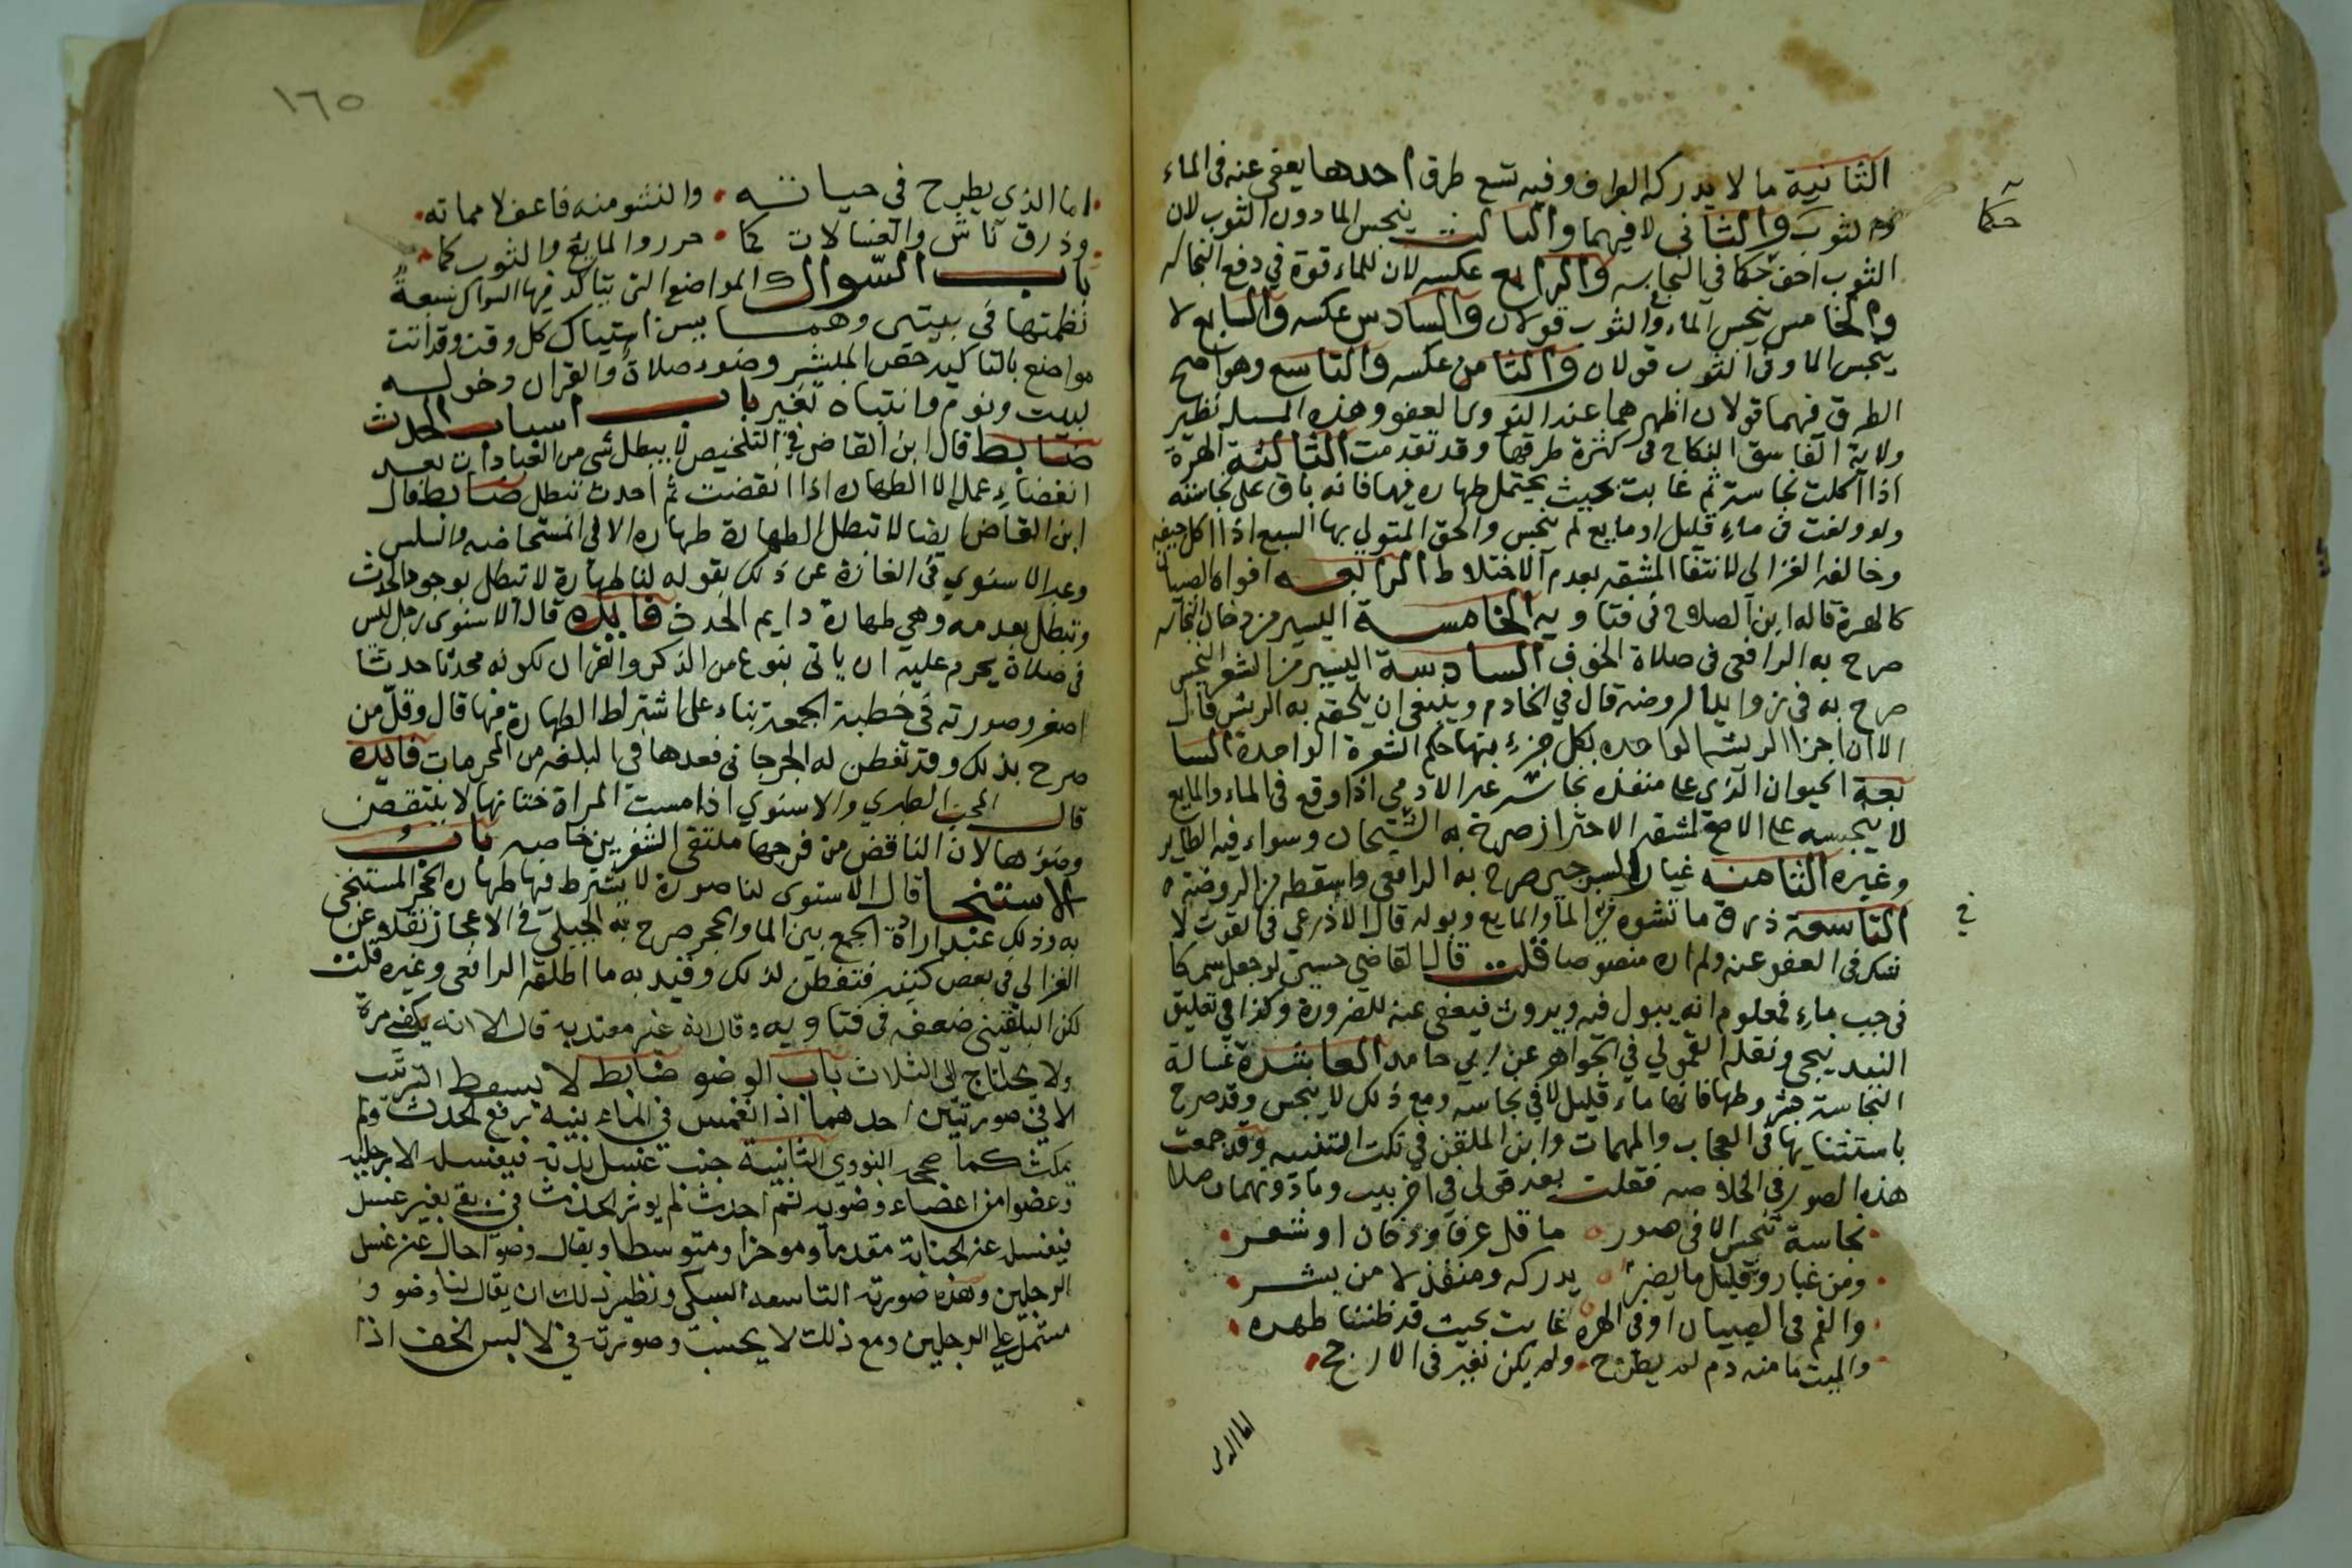 الثانية ما لا يدركه الطرف وفيه تسع طرق احدها يعفى عنه في الماء
والثوب والثاني لا فيهما والثالث ينجس الما دون الثوب لان
حكما
الثوب اخف حكما في النجاسه والرابع عكسه لان للماء قوة في دفع النجاسه
والخامس ينجس الماء وفي الثوب قولان والسادس عكسه والسابع لا
ينجس الما وفي الثوب قولان والثامن عكسه والتاسع وهو اصح
الطرق فيهما قولان اظهرهما عند النووي العفو وهذه المسله نظير
ولاية الفاسق النكاح في كثرة طرقها وقد تقدمت الثالثة الهرة
اذا اكلت نجاسة ثم غابت بحيث يحتمل طهاره فيها فانه باق على نجاسته
ولو ولغت في ماء قليل او مايع لم ينجس والحق المتولي بها السبع اذا اكل جيفه
وخالفه الغزالي لانتفا المشقه بعدم الاختلاط الرابعه افواه الصبيان
كالهرة قاله ابن الصلاح في فتاويه الخامسة اليسير من دخان النجاسه
صرح به الرافعي في صلاة الخوف السادسة اليسير من الشعر النجس
صرح به في زوايد الروضه قال في الخادم وينبغي ان يلحق به الريش قال
الا ان اجزا الريشه الواحده بكل جزء منها حكم الشعرة الواحدة السا
بعة الحيوان الذي على منفذه نجاسة غير الادمي اذا وقع في الماء والمايع
لا ينجسه على الاصح لمشقه الاحتراز صرح به الشيخان وسواء فيه الطاير
وغيره الثامنه غبار السرجين صرح به الرافعي واسقطه من الروضة
في
التاسعة ذرق ما نشوه من الما والمايع وبوله قال الاذرعي في القوت لا
شك في العفو عنه ولم اره منصوصا قلت قال القاضي حسين لو جعل سمكا
في جب ماء فمعلوم انه يبول فيه ويروث فيعفى عنه للضرورة وكذا في تعليق
البندنيجي ونقله القمولي في الجواهر عن ابي حامد العاشرة غسالة
النجاسة بشروطها فانها ماء قليل لاقى نجاسه ومع ذلك لا ينجس وقد صرح
باستثنايها في العجاب والمهمات وابن الملقن في نكت التنبيه وقد جمعت
هذه الصور في الخلاصه فقلت بعد قولي في اخر بيت
نجاسة تنجس الا في صور ما قل عرفا من دخان او شعر
ومن غبار وقليل ما البصر يدركه ومنفذ لا من بشر
والفم في الصبيان او في الهره غابت بحيث قد ظننا طهره
والميت ما منه دم لم يطرح ولم يكن تغير في الارجح
اما الذي
١٦٥
اما الذي يطرح في حياته والنشو منه فاعف لا مماته
وذرق ناش والغسالات كما حرروا المايع والثوب كما
باب السواك المواضع التي يتاكد فيها السواك سبعة
نظمتها في بيتين وهما يسن استياك كل وقت وقد اتت
مواضع بالتاكيد خص المبشر وضوء صلاة والقران دخوله
لبيت ونوم وانتباه تغير باب اسباب الحدث
ضابط قال ابن القاص في التلخيص لا يبطل شي من العبادات بعد
انقضاء عمله الا الطهاره اذا انقضت ثم احدث تبطل ضابط قال
ابن القاص ايضا لا تبطل الطهارة طهاره الا في المستحاضه والسلس
وعبر الاسنوي في الغازه عن ذلك بقوله لنا طهارة لا تبطل بوجود الحدث
وتبطل بعدمه وهي طهارة دايم الحدث فايده قال الاسنوي رجل ليس
في صلاة يحرم عليه ان ياتي بنوع من الذكر والقران لكونه محدثا حدثا
اصغر وصورته في خطبة الجمعة بناء على اشتراط الطهارة فيها قال وقل من
صرح بذلك وقد تفطن له الجرجاني فعدها في البلغه من المحرمات فايده
قال المحب الطبري والاسنوي اذا مست المراة ختانها لا ينتقض
وضوءها لان الناقض من فرجها ملتقى الشفرين خاصه باب
الاستنجا قال الاسنوي لنا صورة لا يشترط فيها طهاره الحجر المستنجى
به وذلك عند ارادة الجمع بين الما والحجر صرح به الجيلي في الاعجاز نقله عن
الغزالي في بعض كتبه فتفطن لذلك وقيد به ما اطلقه الرافعي وغيره قلت
لكن البلقيني ضعفه في فتاويه وقال انه غير معتد به قال الا انه يكفي مرة
ولا يحتاج الى الثلاث باب الوضو ضابط لا يسقط الترتيب
الا في صورتين احدهما اذا انغمس في الماء بنية رفع الحدث ولم
يمكث كما صححه النووي الثانية جنب غسل بدنه فيغسله الا رجليه
وعضوا من اعضاء وضويه ثم احدث لم يوثر الحدث في بقي بغير غسل
فيغسل عن الجنابة مقدما وموخرا ومتوسطا ويقال وضو خال عن غسل
الرجلين وهذه صورته التاسعه السبكي ونظير ذلك ان يقال لنا وضو و
مشتمل على الرجلين ومع ذلك لا يحسب وصورته في لابس الخف اذا